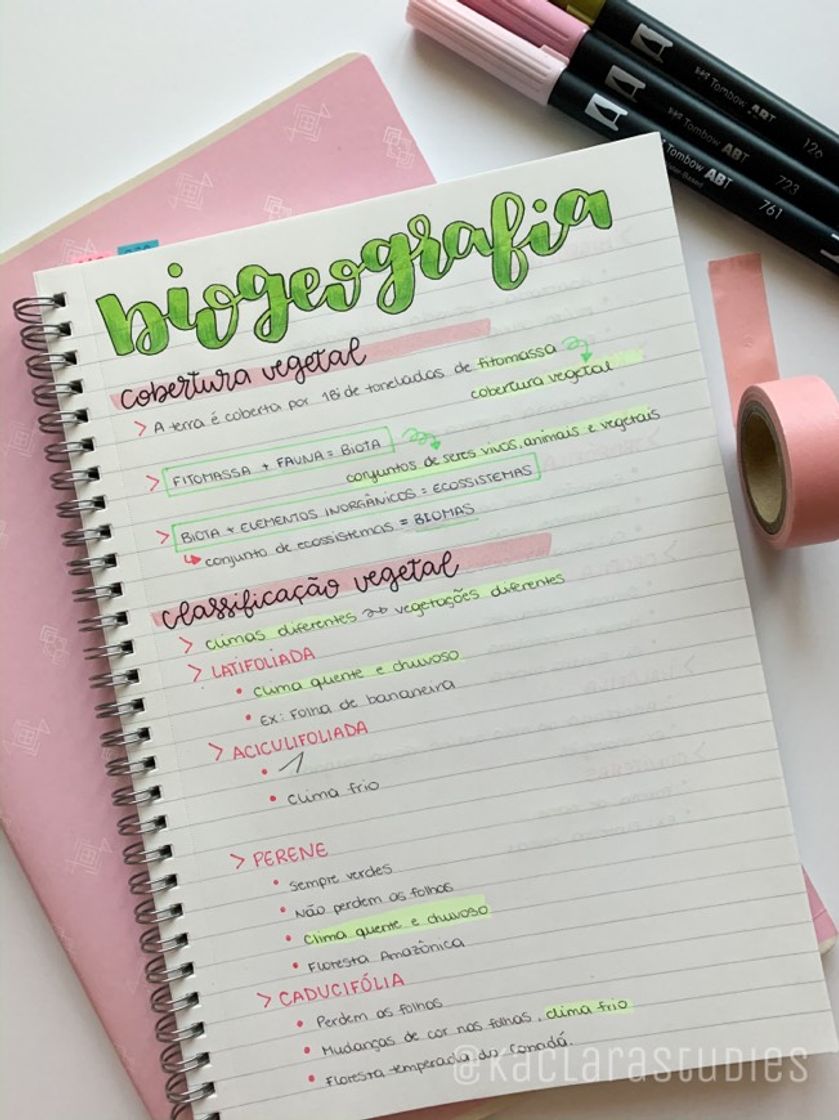 biogeografia
cobertura vegetal
> A terra é coberta por 18i de toneladas de fitomassa
cobertura vegetal
> FITOMASSA + FAUNA = BIOTA
conjuntos de seres vivos, animais e vegetais
> BIOTA + ELEMENTOS INORGÂNICOS = ECOSSISTEMAS
conjunto de ecossistemas = BIOMAS
classificação vegetal
> climas diferentes ~> vegetações diferentes
> LATIFOLIADA
• clima quente e chuvoso
• EX: Folha de bananeira
> ACICULIFOLIADA
•
• clima frio
> PERENE
• sempre verdes
• Não perdem as folhas
• Clima quente e chuvoso
• Floresta Amazônica
> CADUCIFÓLIA
• Perdem as folhas
• Mudanças de cor nas folhas, clima frio
• Floresta temperada do Canadá.
@KACLARASTUDIES
Tombow ABT 126
Tombow ABT 723
Tombow ABT 761